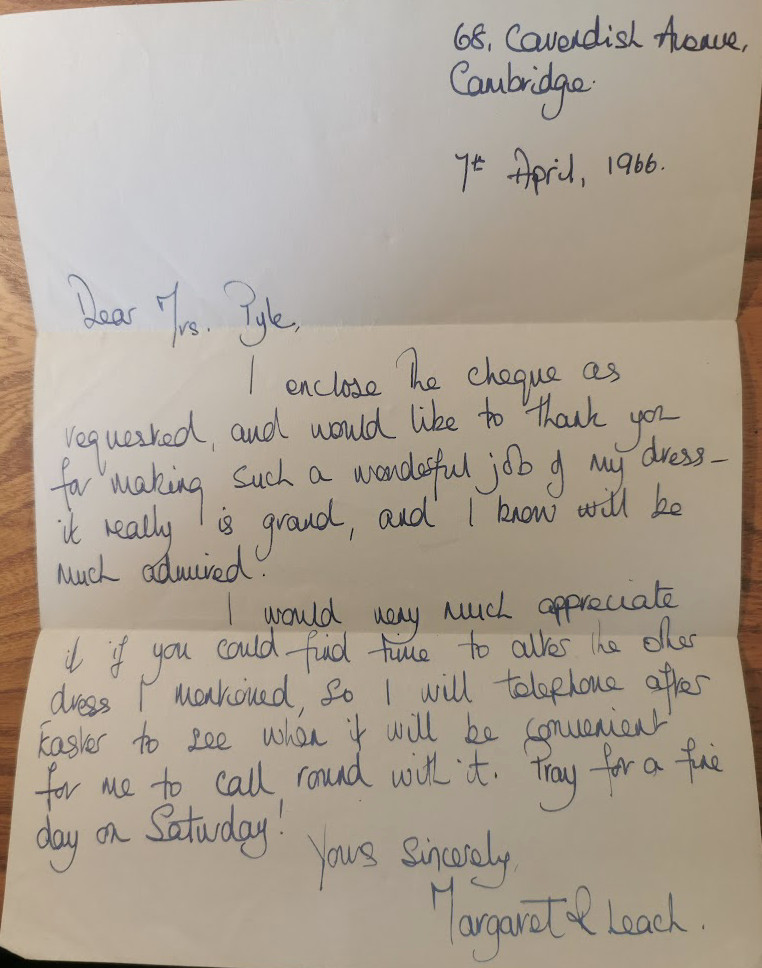 68, Cavendish Avenue,
Cambridge.
7th April, 1966.
Dear Mrs. Pyle,
I enclose the cheque as
requested, and would like to thank you
for making such a wonderful job of my dress –
it really is grand, and I know will be
much admired.
I would very much appreciate
it if you could find time to alter the other
dress I mentioned, so I will telephone after
Easter to see when it will be convenient
for me to call round with it. Pray for a fine
day on Saturday!
Yours sincerely,
Margaret R Leach.